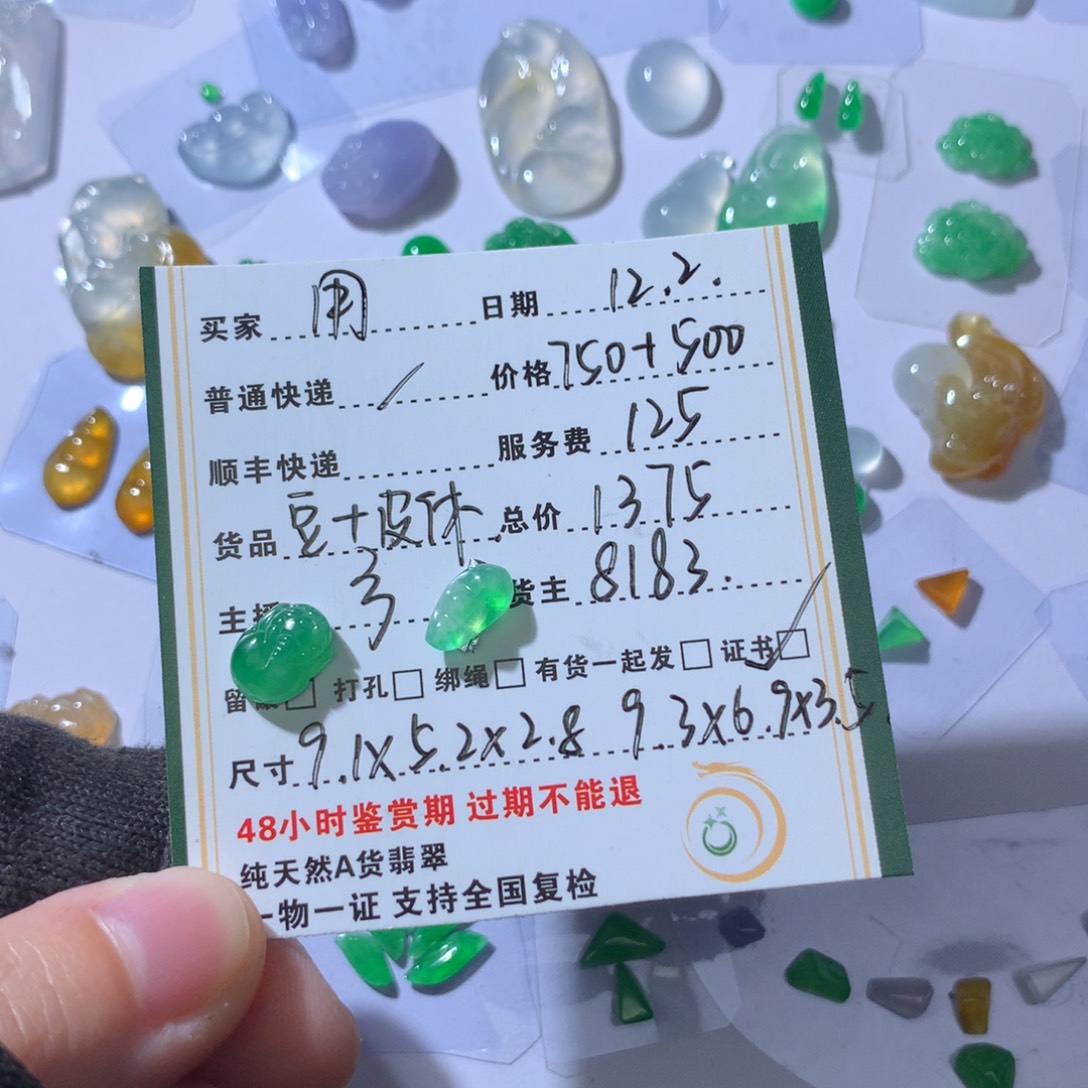 买家 用 日期 12.2.
普通快递 / 价格 750+500
顺丰快递 服务费 125
货品 豆+皮休 总价 1375
主播 3 货主 8183.
留 □ 打孔□ 绑绳□ 有货一起发□ 证书☑
尺寸 9.1×5.2×2.8 9.3×6.9×3.5
48小时鉴赏期 过期不能退
纯天然A货翡翠
一物一证 支持全国复检